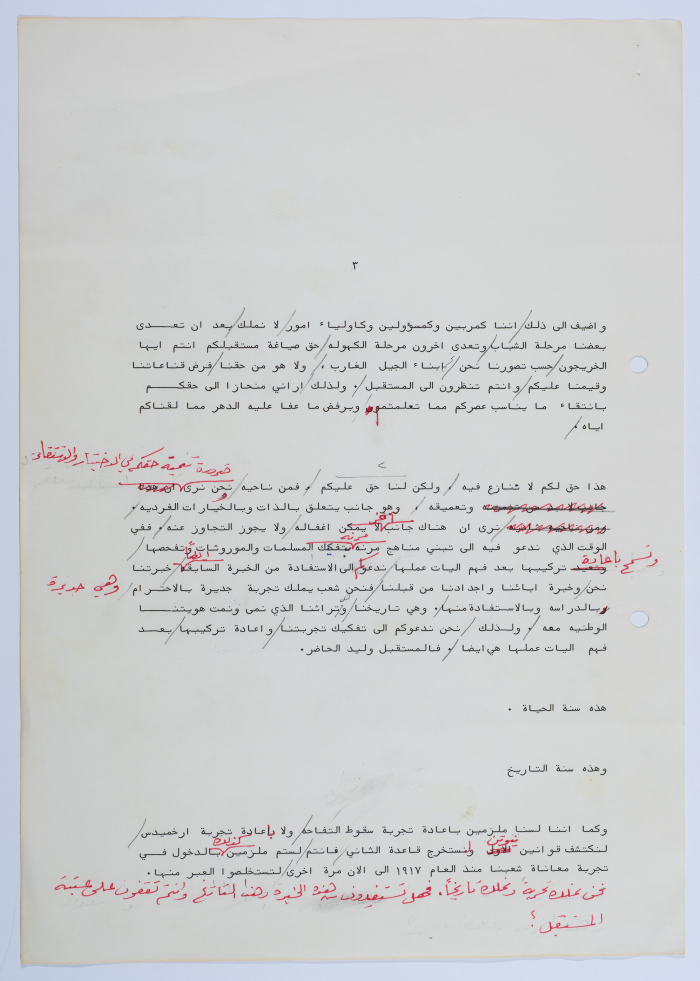 ٣
واضيف الى ذلك اننا كمربين وكمسؤولين وكاولياء امور لا نملك بعد ان تعـــدى
بعضنا مرحلة الشباب وتعدى اخرون مرحلة الكهوله حق صياغة مستقبلكم انتم ايها
الخريجون حسب تصورنا نحن أبناء الجيل الغارب، ولا هو من حقنا فرض قناعاتنا
وقيمنا عليكم وانتم تنظرون الى المستقبل . ولذلك اراني منحازا الى حقكـــم
بانتقاء ما يناسب عصركم مما تعلمتموه وبرفض ما عفا عليه الدهر مما لقناكم
اياه .
ضرورة تنمية حقكم في الاختيار والانتقاء
هذا حق لكم لا تنازع فيه . ولكن لنا حق عليكم . فمن ناحيه نحن نرى
وتعميقه . وهو جانب يتعلق بالذات وبالخيارات الفرديه .
آخر
نرى ان هناك جانب لا يمكن اغفاله ولا يجوز التجاوز عنه . ففي
مرنه
الوقت الذي ندعو فيه الى تبني مناهج مرنه بتفكيك المسلمات والموروثات وتفحصها
أيضاً
وتسمح باعادة
وتعيد تركيبها بعد فهم اليات عملها ندعوكم الى الاستفادة من الخبرة السابقة خبرتنا
وهي جديرة
نحن وخبرة ابائنا واجدادنا من قبلنا فنحن شعب يملك تجربة جديرة بالاحترام
وبالدراسه وبالاستفادة منها . وهي تاريخنا وتراثنا الذي نمى ونمت هويتنــا
الوطنيه معه . ولــذلك نحن ندعوكم الى تفكيك تجربتنا واعادة تركيبها بعــد
فهم اليات عملها هي ايضا . فالمستقبل وليد الحاضر .
هذه سنة الحياة .
وهذه سنة التاريخ
وكما اننا لسنا ملزمين باعادة تجربة سقوط التفاحه ولا باعادة تجربة ارخميدس
نيوتن
كذلك
لنكتشف قوانين الاول ولنستخرج قاعدة الثاني فانتم لستم ملزمين بالدخول فــي
تجربة معاناة شعبنا منذ العام ١٩١٧ الى الان مرة اخرى لتستخلصوا العبر منها .
نحن نملك تجربة ونملك تاريخاً . فهل تستفيدون من هذه الخبرة وهذا التاريخ وانتم تقفون على عتبة
المستقبل ؟